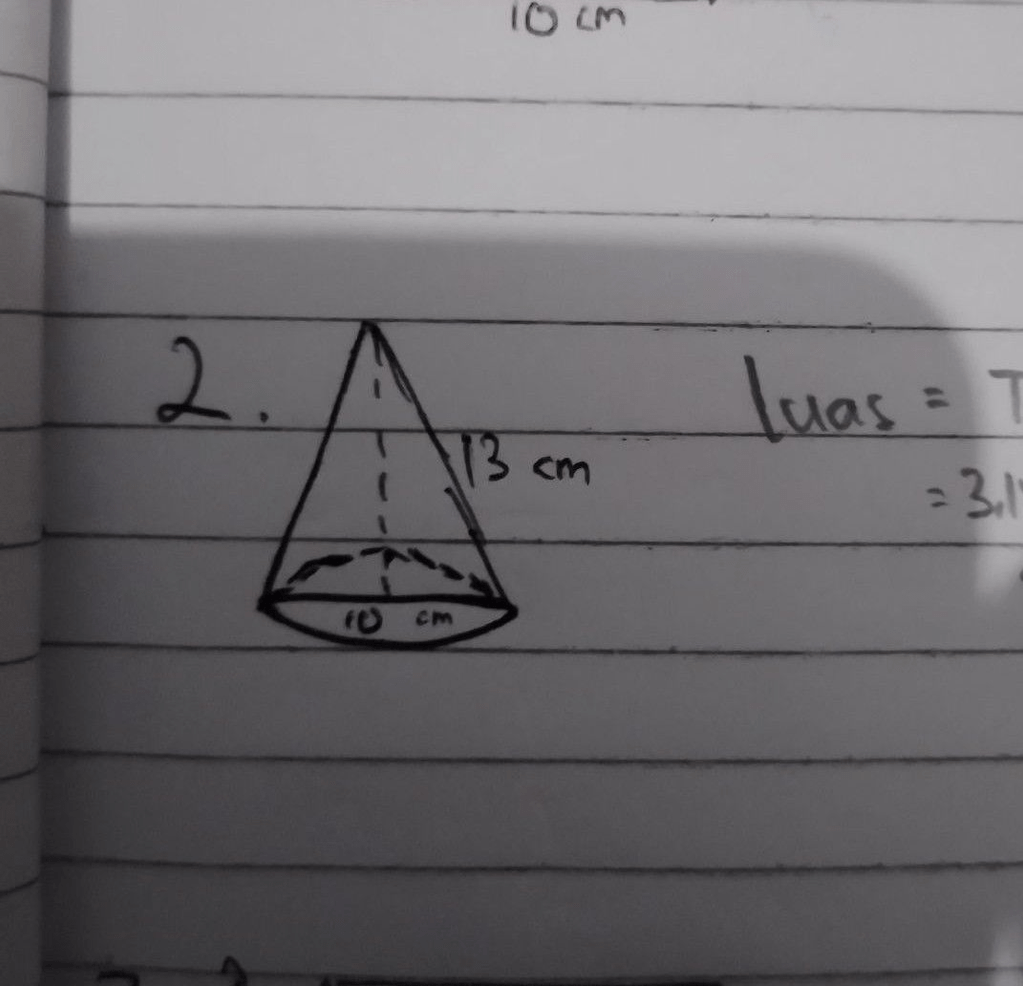 10 cm
2.
luas =
13 cm
= 3,1
10 cm